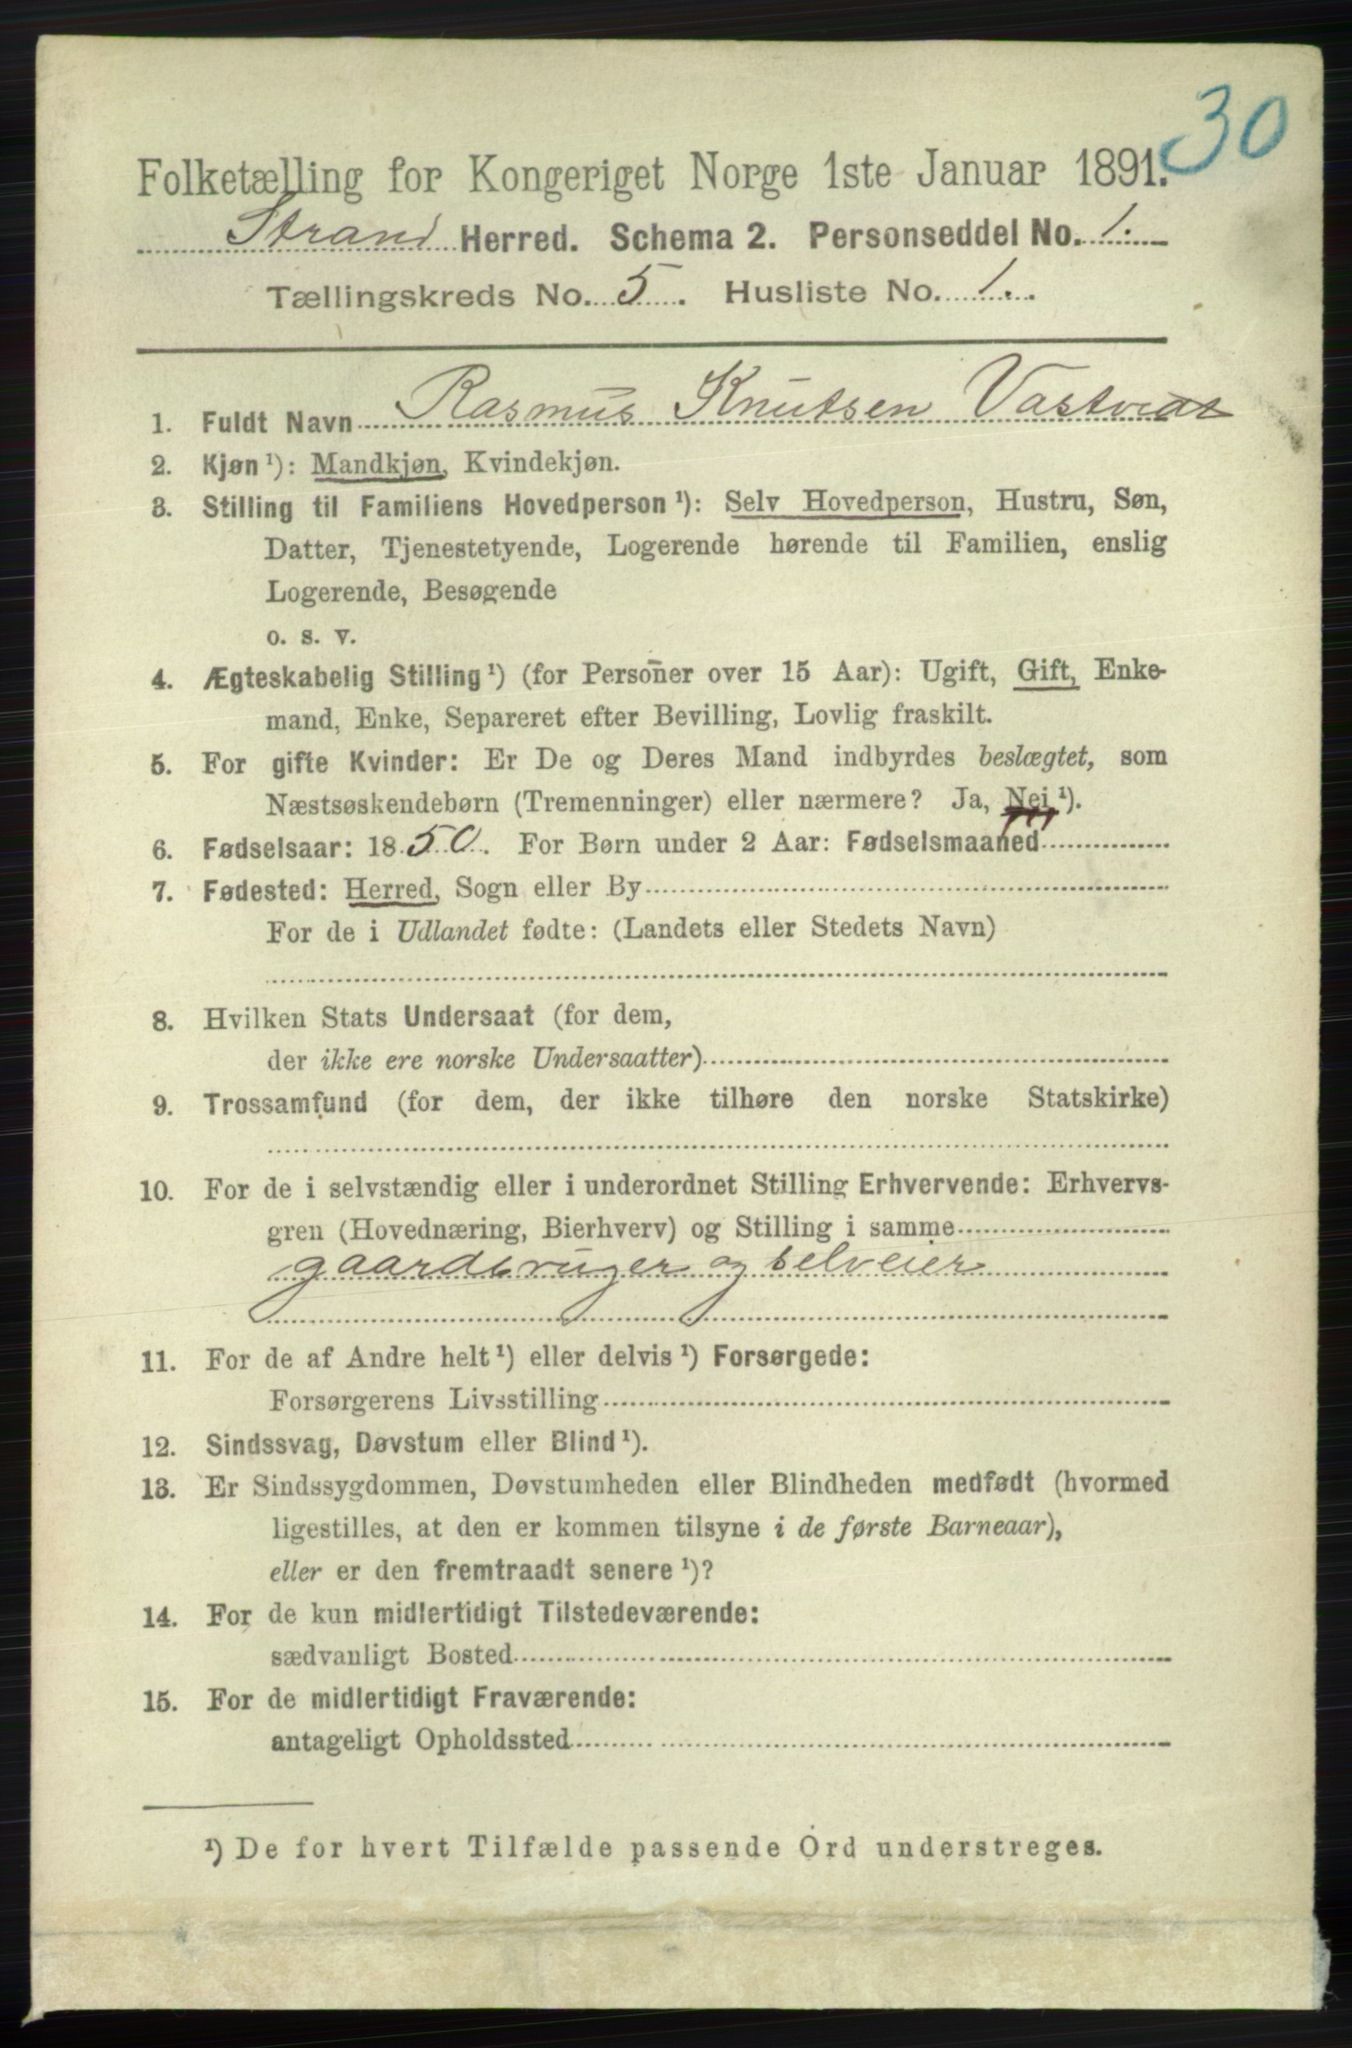 30
Folketælling for Kongeriget Norge 1ste Januar 1891.
Strand Herred. Schema 2. Personseddel No. 1.
Tællingskreds No. 5. Husliste No. 1.
1. Fuldt Navn Rasmus Knutsen Vastveat
2. Kjøn ¹): Mandkjøn, Kvindekjøn.
3. Stilling til Familiens Hovedperson ¹): Selv Hovedperson, Hustru, Søn,
Datter, Tjenestetyende, Logerende hørende til Familien, enslig
Logerende, Besøgende
o. s. v.
4. Ægteskabelig Stilling ¹) (for Personer over 15 Aar): Ugift, Gift, Enke-
mand, Enke, Separeret efter Bevilling, Lovlig fraskilt.
5. For gifte Kvinder: Er De og Deres Mand indbyrdes beslægtet, som
Næstsøskendebørn (Tremenninger) eller nærmere? Ja, Nei ¹).
6. Fødselsaar: 1850. For Børn under 2 Aar: Fødselsmaaned
7. Fødested: Herred, Sogn eller By
For de i Udlandet fødte: (Landets eller Stedets Navn)
8. Hvilken Stats Undersaat (for dem,
der ikke ere norske Undersaatter)
9. Trossamfund (for dem, der ikke tilhøre den norske Statskirke)
10. For de i selvstændig eller i underordnet Stilling Erhvervende: Erhvervs-
gren (Hovednæring, Bierhverv) og Stilling i samme
gaardbruger og selveier
11. For de af Andre helt ¹) eller delvis ¹) Forsørgede:
Forsørgerens Livsstilling
12. Sindssvag, Døvstum eller Blind ¹).
13. Er Sindssygdommen, Døvstumheden eller Blindheden medfødt (hvormed
ligestilles, at den er kommen tilsyne i de første Barneaar),
eller er den fremtraadt senere ¹)?
14. For de kun midlertidigt Tilstedeværende:
sædvanligt Bosted
15. For de midlertidigt Fraværende:
antageligt Opholdssted
¹) De for hvert Tilfælde passende Ord understreges.